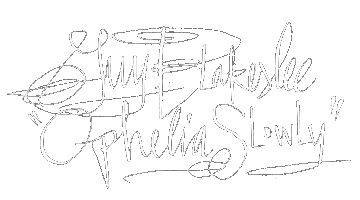 Guy Blakeslee
"Ophelia Slowly"